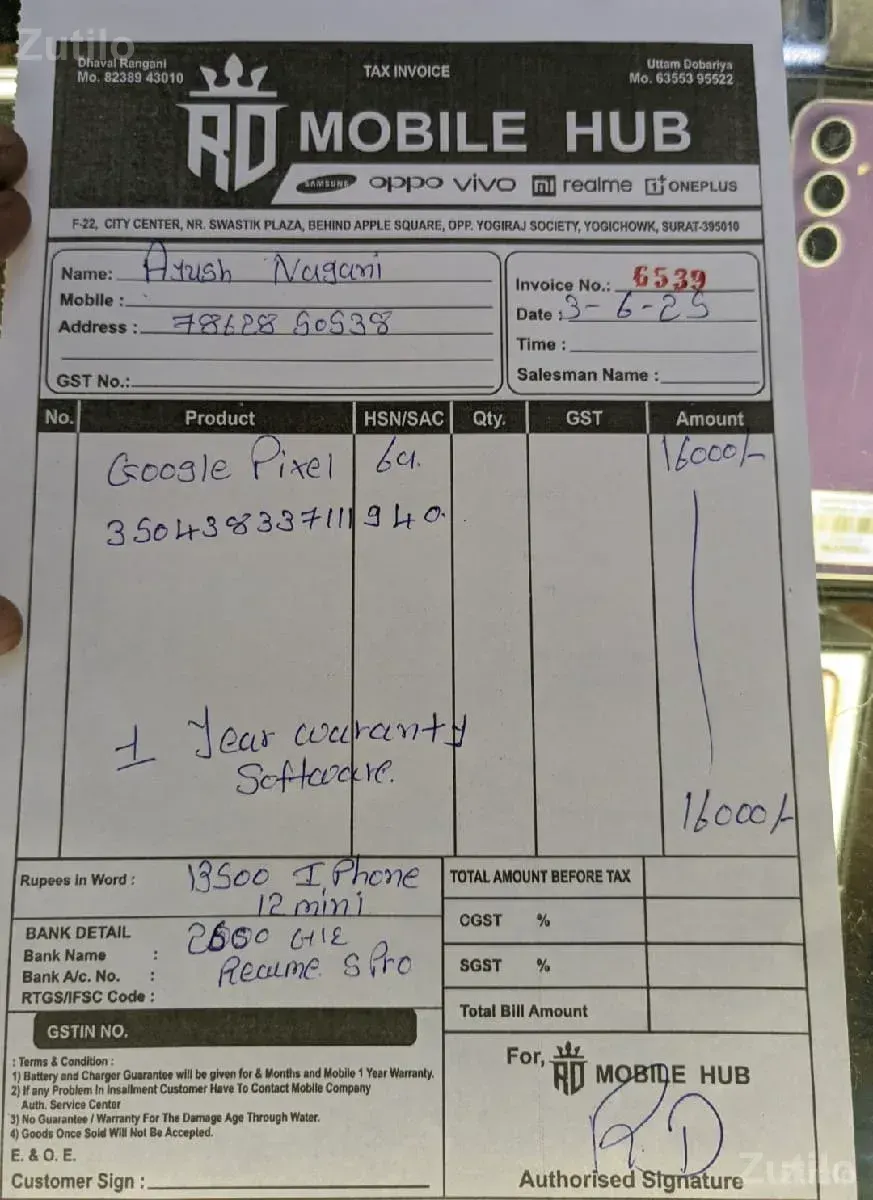 Zutilo
Dhaval Rangani
Mo. 82389 43010
TAX INVOICE
Uttam Dobariya
Mo. 63553 95522
RD MOBILE HUB
SAMSUNG oppo vivo mi realme 1+ ONEPLUS
F-22, CITY CENTER, NR. SWASTIK PLAZA, BEHIND APPLE SQUARE, OPP. YOGIRAJ SOCIETY, YOGICHOWK, SURAT-395010
Name: Ayush Nagani
Mobile :
Address : 78628 50538
GST No.:
Invoice No.: 6539
Date : 3-6-25
Time :
Salesman Name :
No. Product HSN/SAC Qty. GST Amount
Google Pixel 6a. 16000/-
350438337111940.
1 Year warranty
Software.
16000/-
Rupees in Word : 13500 I Phone
12 mini
BANK DETAIL
Bank Name :
Bank A/c. No. :
RTGS/IFSC Code :
Realme 8 Pro
TOTAL AMOUNT BEFORE TAX
CGST %
SGST %
Total Bill Amount
GSTIN NO.
: Terms & Condition :
1) Battery and Charger Guarantee will be given for 6 Months and Mobile 1 Year Warranty.
2) If any Problem In Insallment Customer Have To Contact Mobile Company
Auth. Service Center
3) No Guarantee / Warranty For The Damage Age Through Water.
4) Goods Once Sold Will Not Be Accepted.
E. & O. E.
Customer Sign :
For, RD MOBILE HUB
RD
Authorised Signature
Zutilo